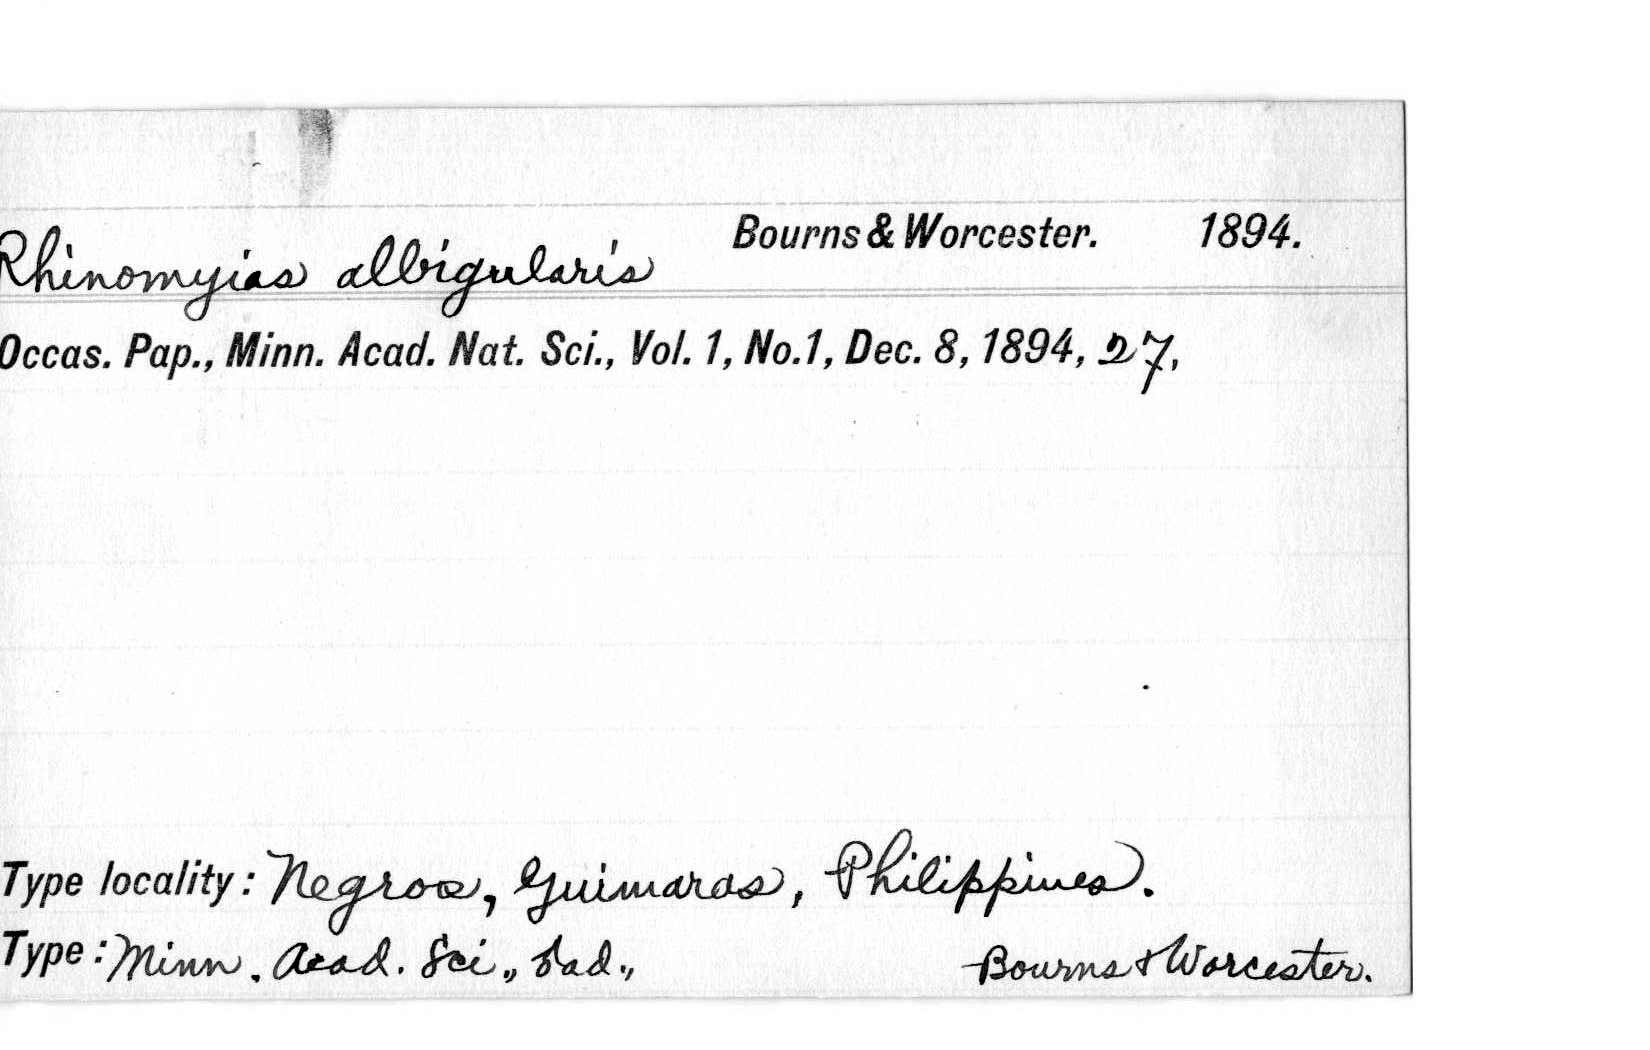 Bourns & Worcester. 1894.
Rhinomyias albigularis
Occas. Pap., Minn. Acad. Nat. Sci., Vol. 1, No. 1, Dec. 8, 1894, 27.
Type locality: Negros, Guimaras, Philippines.
Type: Minn. Acad. Sci., ♂ad., Bourns & Worcester.